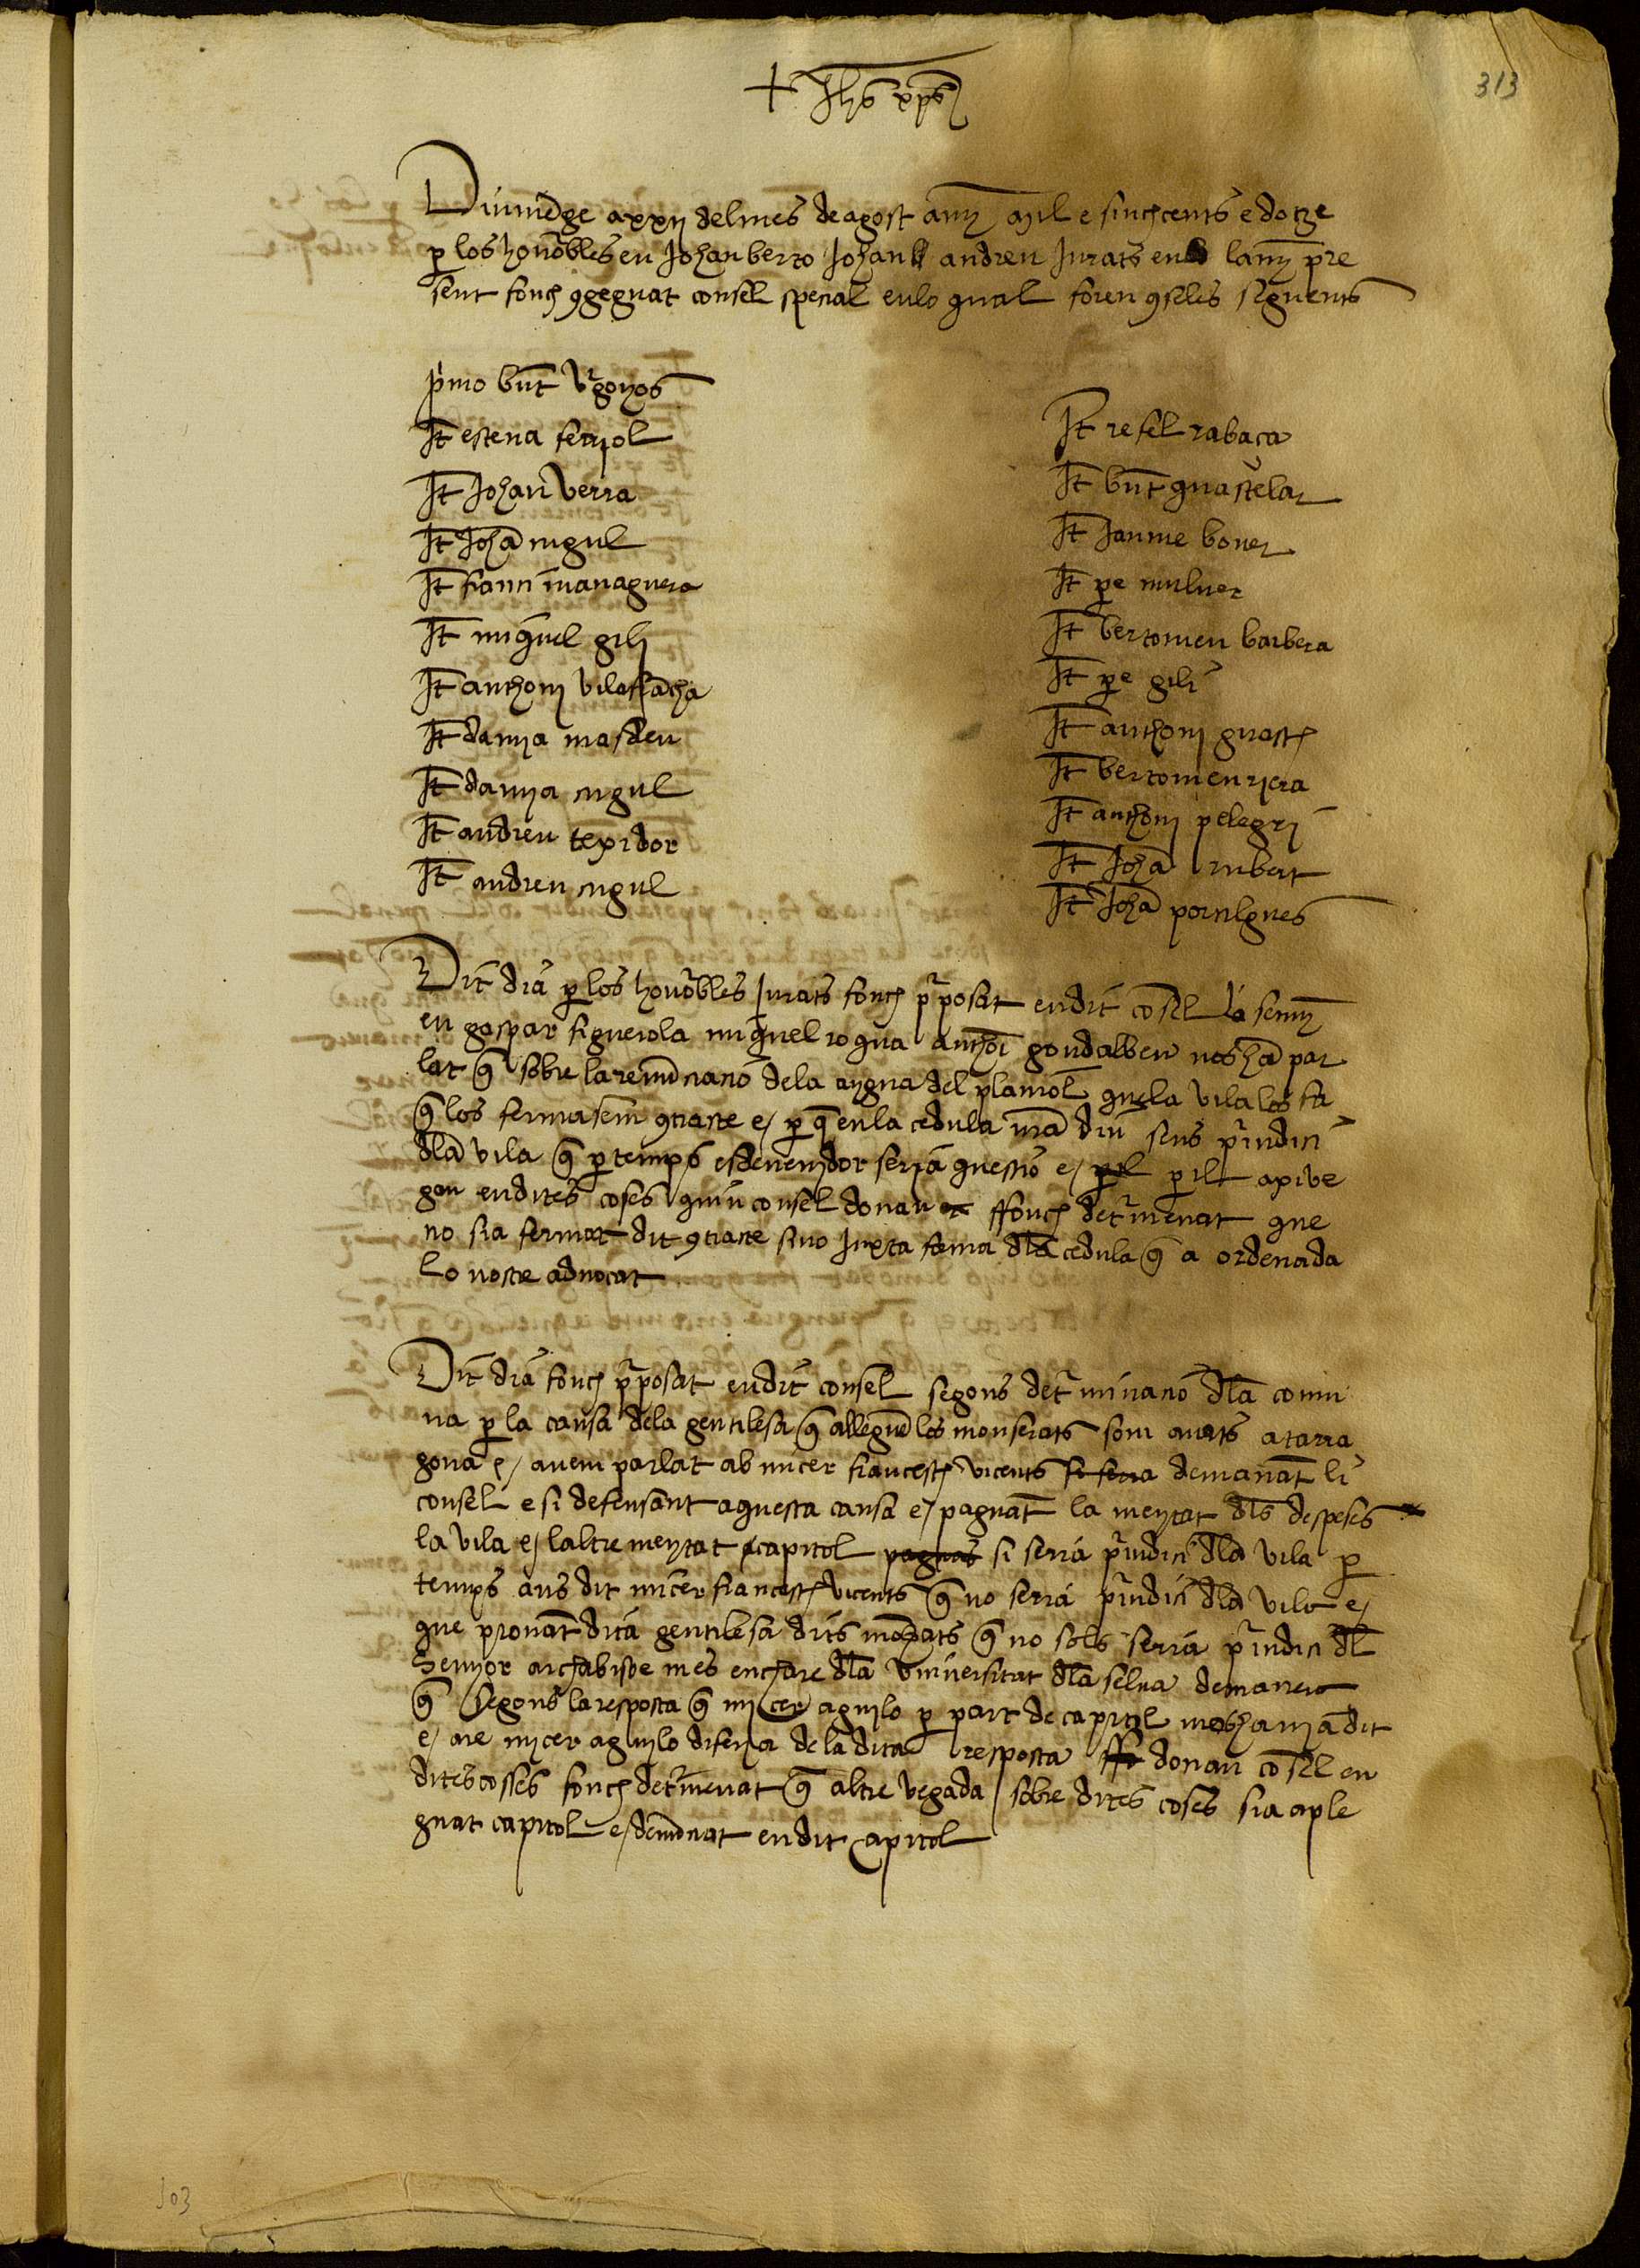 313
+ Jhs xps
Diumēge a xxij del mes de agost añy mil e sinchcents e dotze
p los honōbles en Johan berto Johan andreu Jurats en lany pre
sent fonch ɔgegnat consel special en lo qual foren ɔseles seguents
pimo bnt vrgonos
It esteva feriol
It Johan verra
It Johā cugul
It franci managuera
It miquel gili
It anthoni vilafrācha
It damia masdeu
It damia cugul
It andreu texidor
It andreu cugul
It refel rabaça
It bnt guastelar
It Jaume bover
It pe muluer
It bertomeu barbera
It pe gili
It anthoni guasch
It bertomeu riera
It anthoni pelegri
It Johā rubert
It Johā portugues
Dit dia p los honōbles Jurats fonch pposat en dit cōsel la seny
en gaspar figuerola miquel rogua anthoi gondalbeu nos hā par
lat q̄ sobre la renūciacio de la aygua del planiol que la vila los fa
q̄ los fermasem ɔtracte e p q̄ en la cedula nrā diu sens piudici
dla vila q̄ p temps esdevenidor seria questio e p ill apibe
gen en dites coses quin consel donau ffonch detmenat que
no sia fermat dit ɔtracte sino Juxta forma dla cedula q̄ a ordenada
lo nostre advocat
Dit dia fonch pposat en dit consel segons detminacio dla comu
na p la causa dela gentilesa q̄ alleguē los monserats som anats a tarra
gona e avem parlat ab micer francesch vicents demanāt li
consel e si defensant aquesta causa e pagnāt la meytat dls despeses
la vila e laltre meytat capitol si seria piudici dla vila p
temps ans dit micer francesch vicents q̄ no seria piudici dla vila e
que provāt dita gentilesa dits mōrats q̄ no sols seria piudici dl
Senyor archabisbe mes enchare dla universitat dla selva demanero
q̄ segons la resposta q̄ micer aguilo p part de capitol nos havia dit
e are micer aguilo diferia de la dita resposta donau cōsel en
dites cosses fonch detmenat q̄ altre vegada sobre dites coses sia aple
guat capitol e demōnat en dit capitol
103